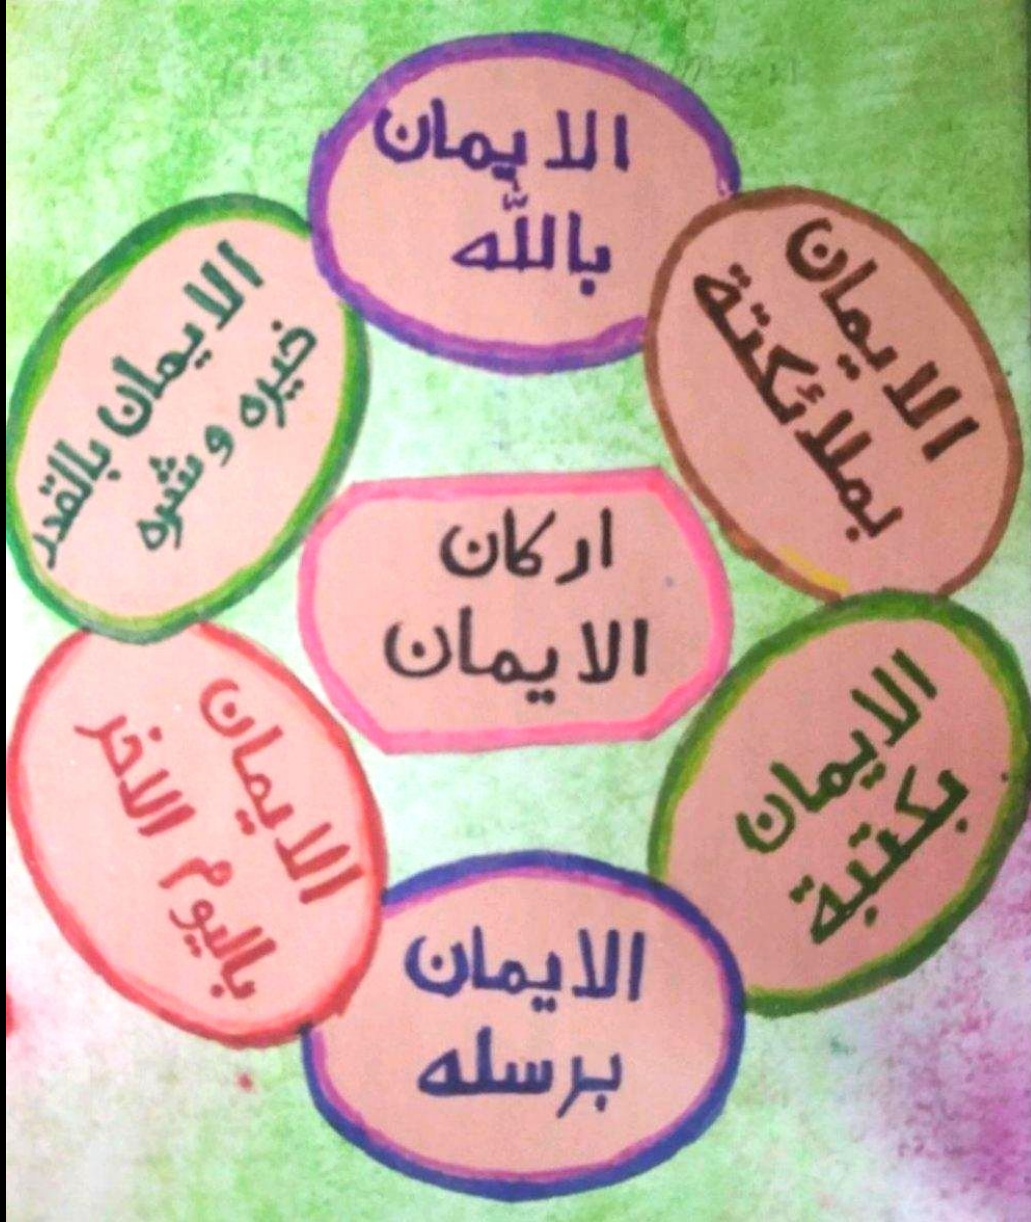 اركان
الايمان
الايمان
بالله
الايمان
بملائكتة
الايمان
بكتبة
الايمان
برسله
الايمان
باليوم الاخر
الايمان بالقدر
خيره وشره